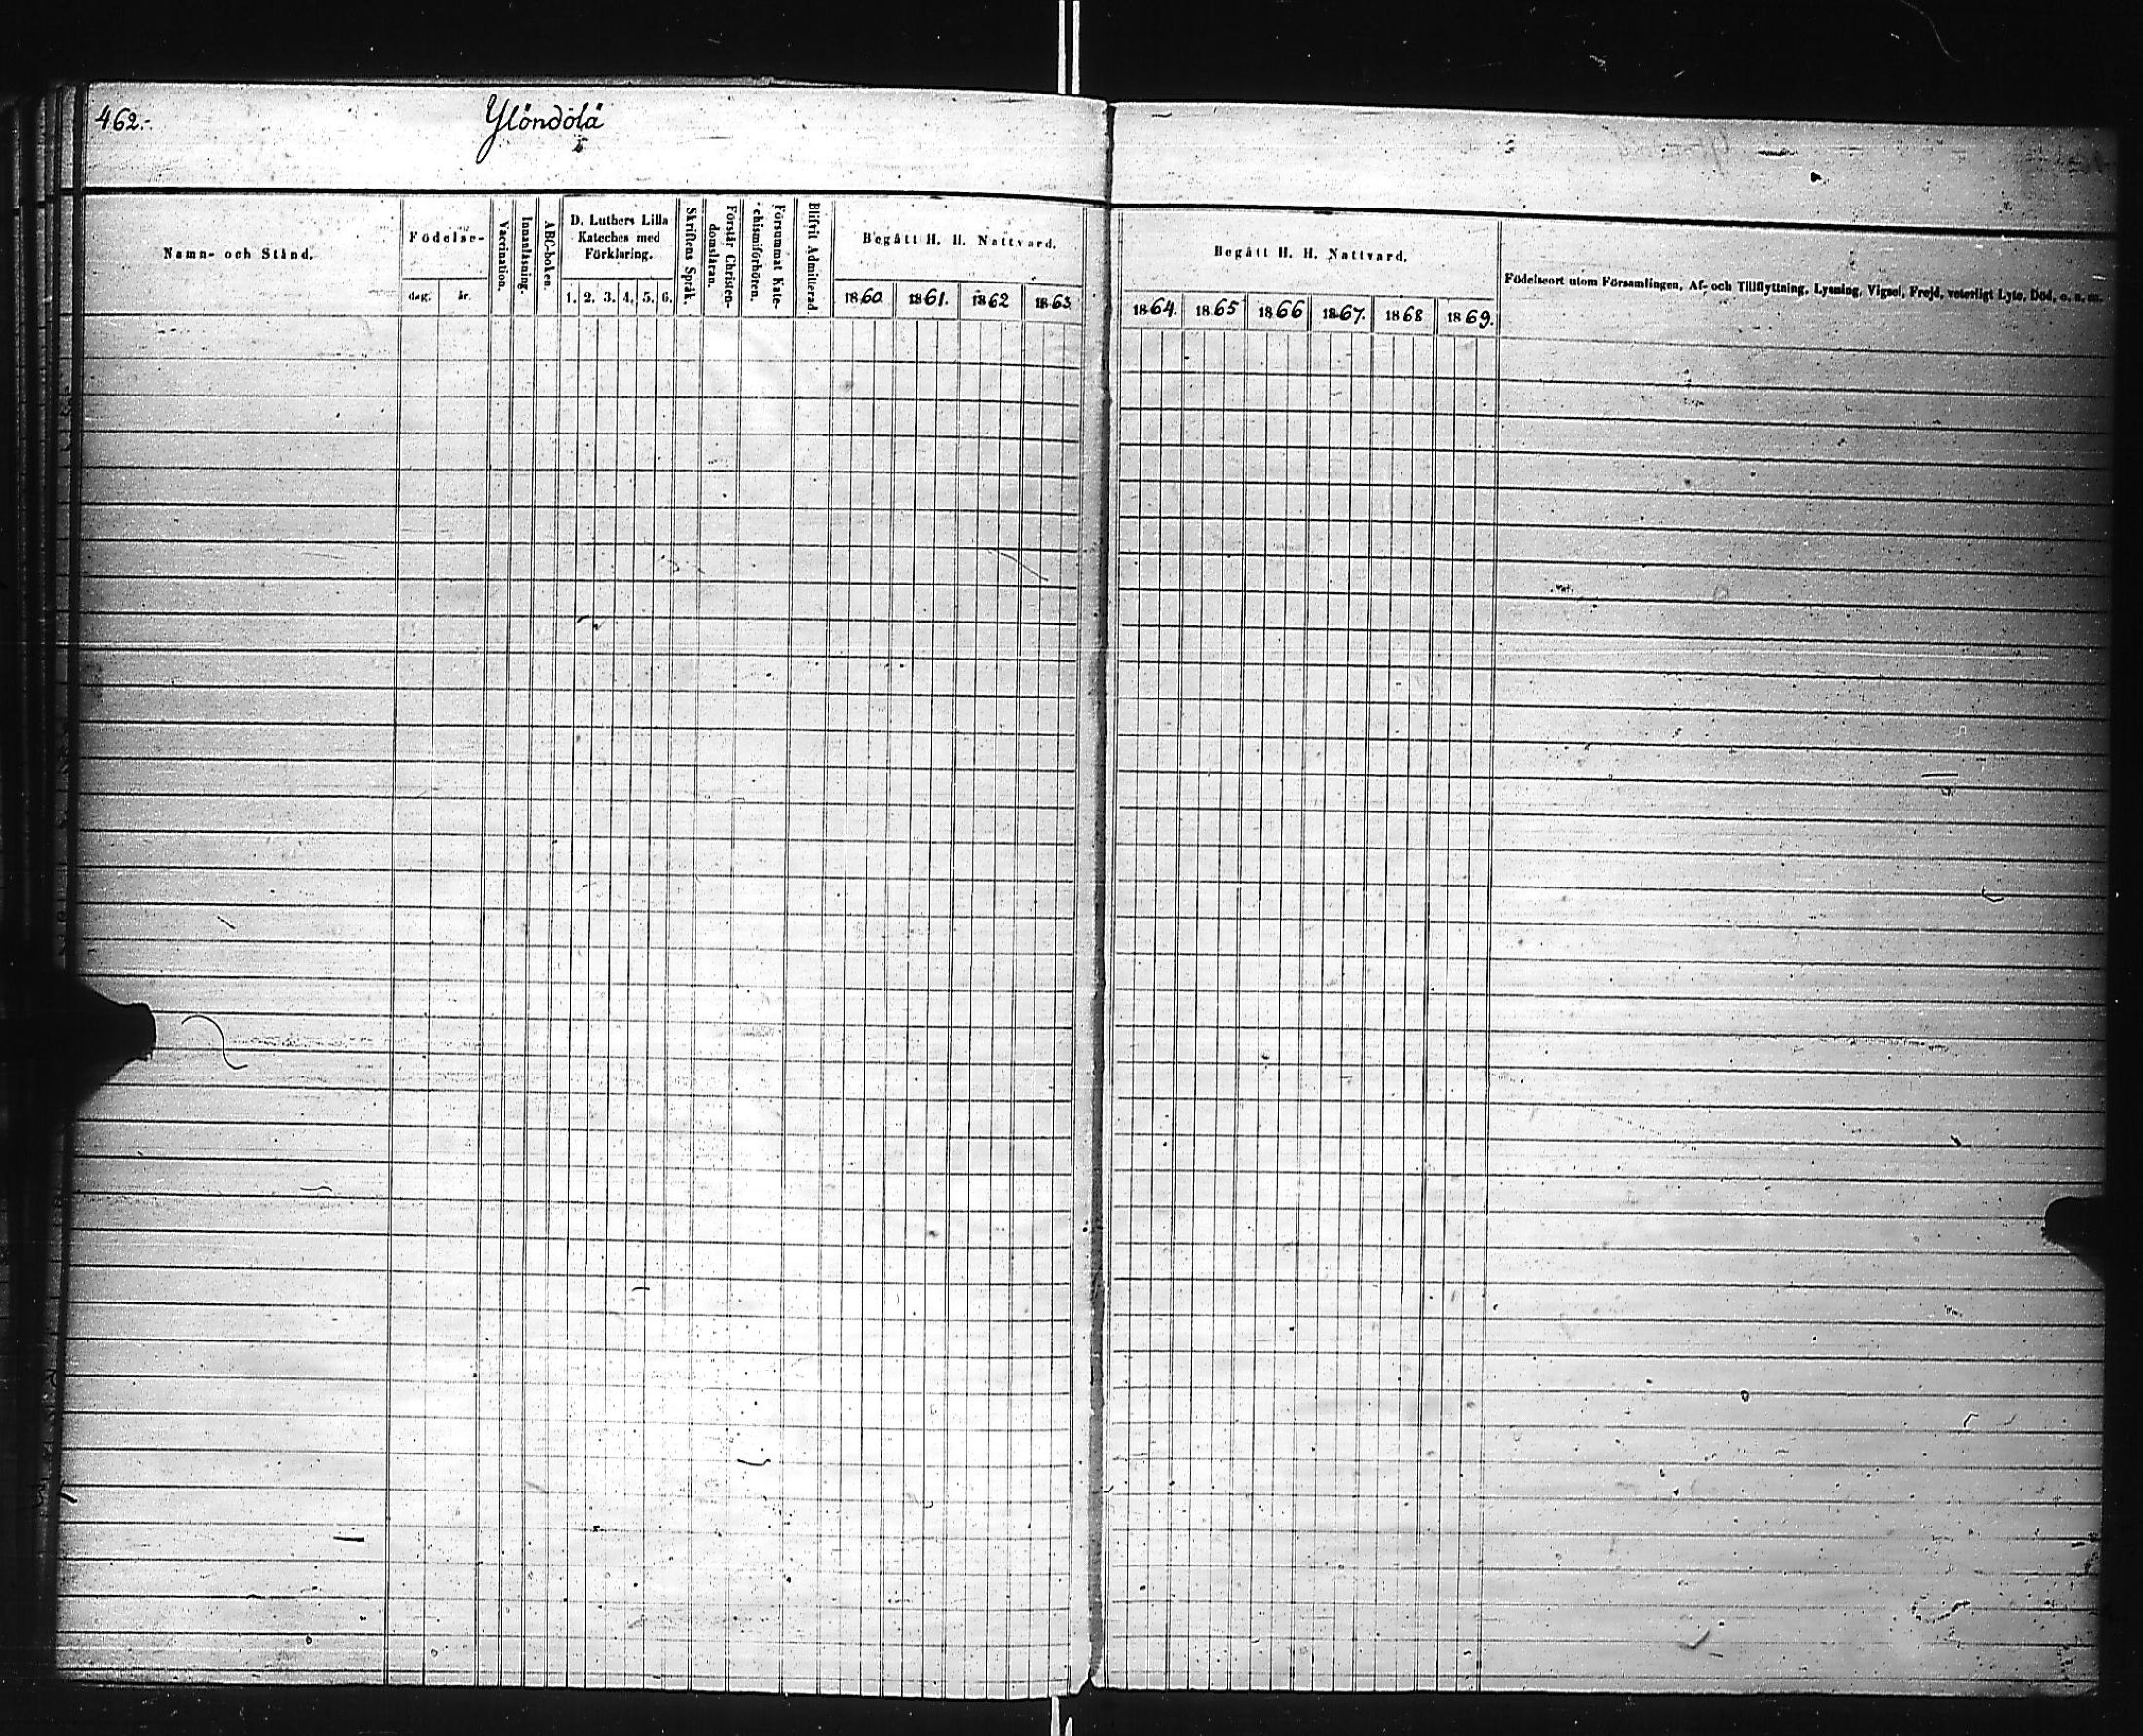 462.-
Ylöndölä
Namn- och Stånd.
Födelse-
dag.
år.
Vaccination.
Innanläsning.
ABC-boken.
D. Luthers Lilla
Kateches med
Förklaring.
1. 2. 3. 4. 5. 6.
Skriftens Språk.
Förstår Christen-
domsläran.
Försummat Kate-
chismiförhören.
Blifvit Admitterad.
Begått H. H. Nattvard.
1860 1861. 1862 1863
Begått H. H. Nattvard.
1864. 1865 1866 1867. 1868 1869.
Födelseort utom Församlingen, Af- och Tillflyttning, Lysning, Vigsel, Frejd, veterligt Lyte, Död, o. s. m.